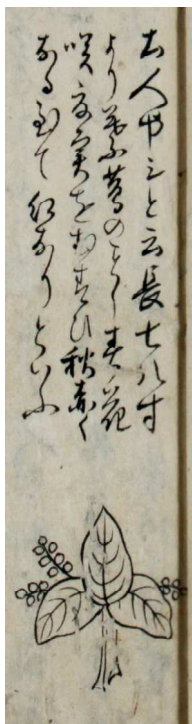 土人ヤミと云長七八寸
より葉ふ蔓のことし其花
咲よ実をむすひ秋赤く
なるふて紅なりといふ